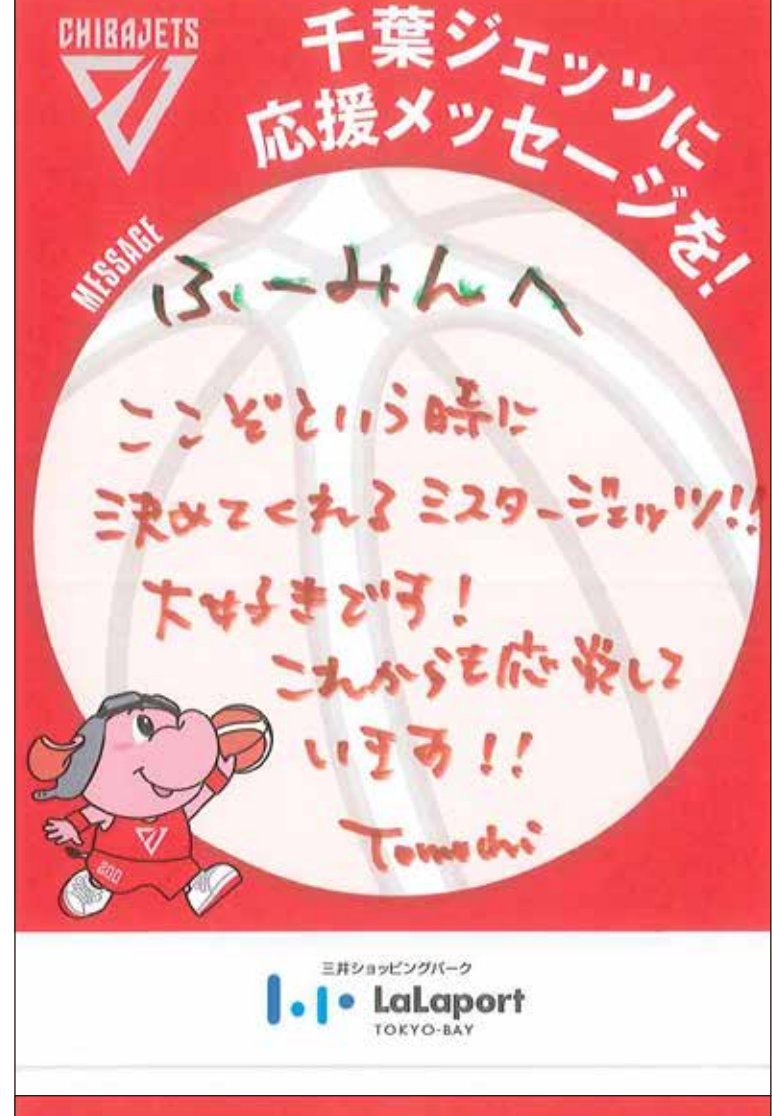 CHIBAJETS
千葉ジェッツに
応援メッセージを!
MESSAGE
ふぃーみんへ
ここぞという時に
決めてくれるミスタージェッツ!!
大好きです!
これからも応援して
います!!
Tomochi
200
三井ショッピングパーク
LaLaport
TOKYO-BAY